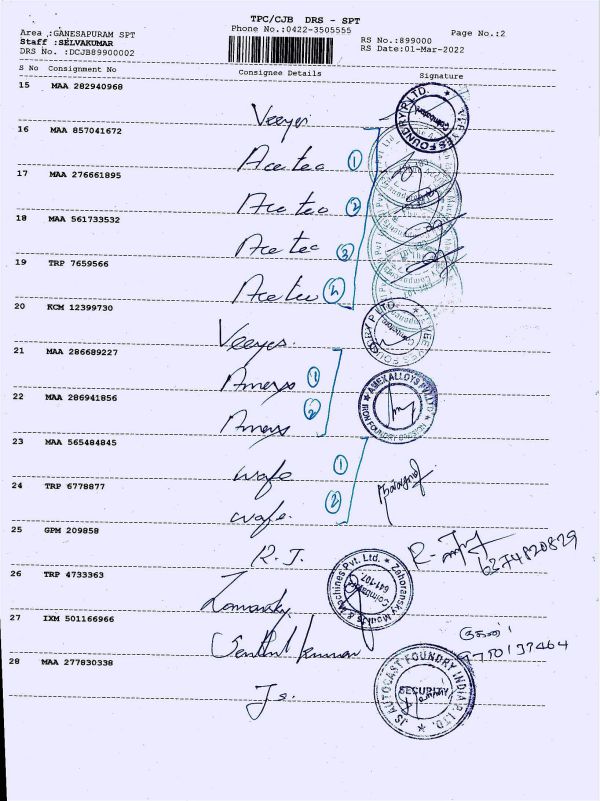 TPC/CJB DRS - SPT
Area :GANESAPURAM SPT
Phone No.:0422-3505555
Page No.:2
Staff :SELVAKUMAR
RS No.:899000
DRS No. :DCJB89900002
RS Date:01-Mar-2022
S No Consignment No Consignee Details Signature
15 MAA 282940968
Veeyes
VEEYES FOUNDRY P LTD. Coimbatore
16 MAA 857041672
Acetec 1
17 MAA 276661895
Acetec 2
18 MAA 561733532
Acetec 3
19 TRP 7659566
Acetec 4
20 KCM 12399730
Veeyes.
21 MAA 286689227
1
22 MAA 286941856
2
AMEX ALLOYS PVT LTD IRON FOUNDRY DIVISION
23 MAA 565484845
1
24 TRP 6778877
2
25 GPM 209858
R. J.
6374820829
26 TRP 4733363
Zahoransky Moulds & Machines Pvt. Ltd. Coimbatore 641-107
27 IXM 501166966
Senthil kumar
28 MAA 277830338
Js.
JS AUTOCAST FOUNDRY INDIA P. LTD. SECURITY